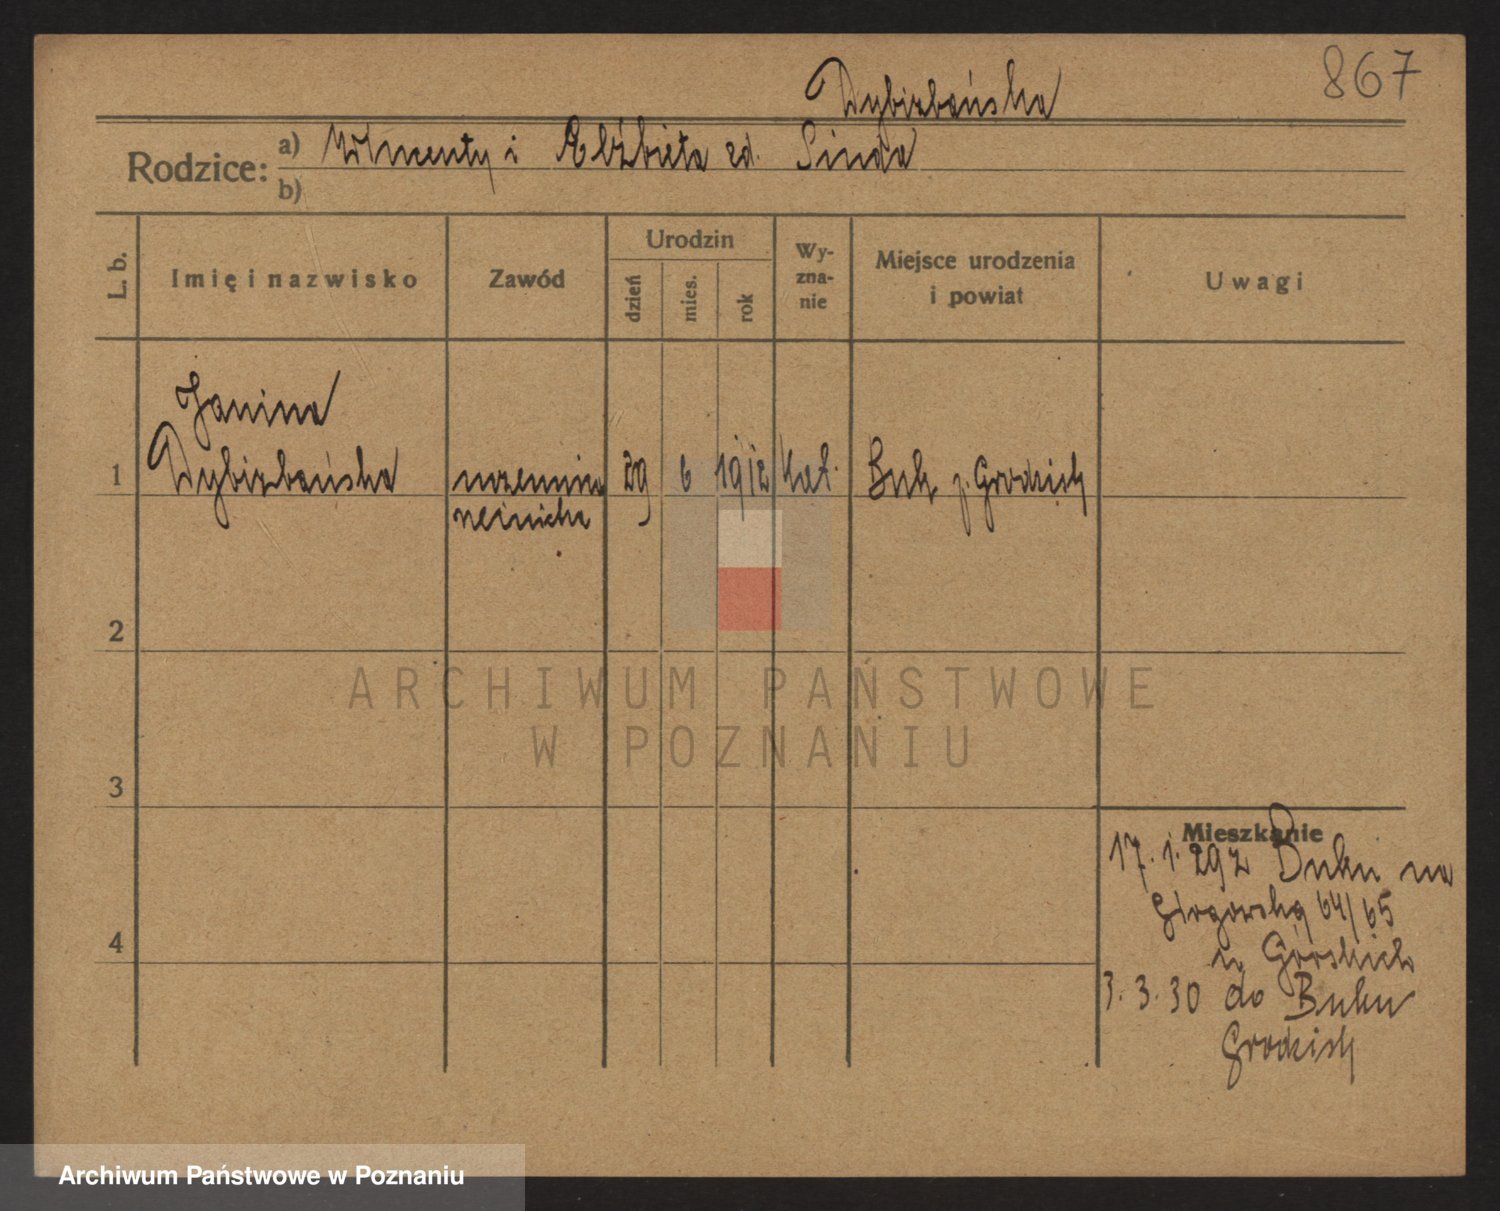 867
Dybizbańska
Rodzice: a) Klmenty i Elżbieta zd. Sinda
b)
L. b.
Imię i nazwisko
Zawód
Urodzin
dzień
mies.
rok
Wy-
zna-
nie
Miejsce urodzenia
i powiat
Uwagi
Janina
1 Dybizbańska 29 6 1912 kat. Buk p. Grodzisk
2
3
4
Mieszkanie
17. 1. 29 z Buku na
Głogowską 64/65
u Górskich
3. 3. 30 do Buku
Grodzisk
ARCHIWUM PAŃSTWOWE
W POZNANIU
Archiwum Państwowe w Poznaniu